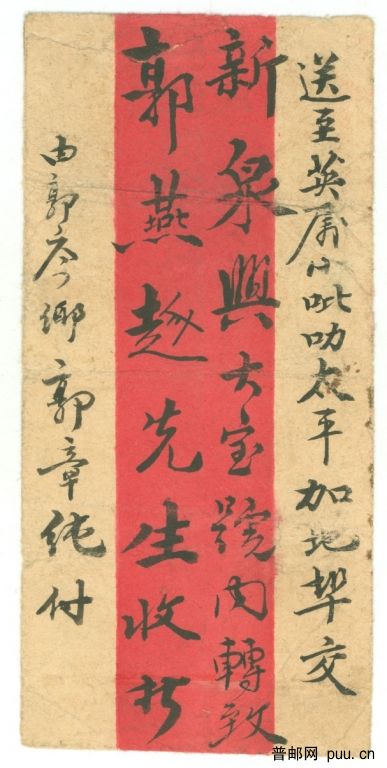 送至英属小吡叻太平加地交
新泉興大宝號内轉致
郭燕先生收
由郭鄉郭章純付
普邮网 puu.cn